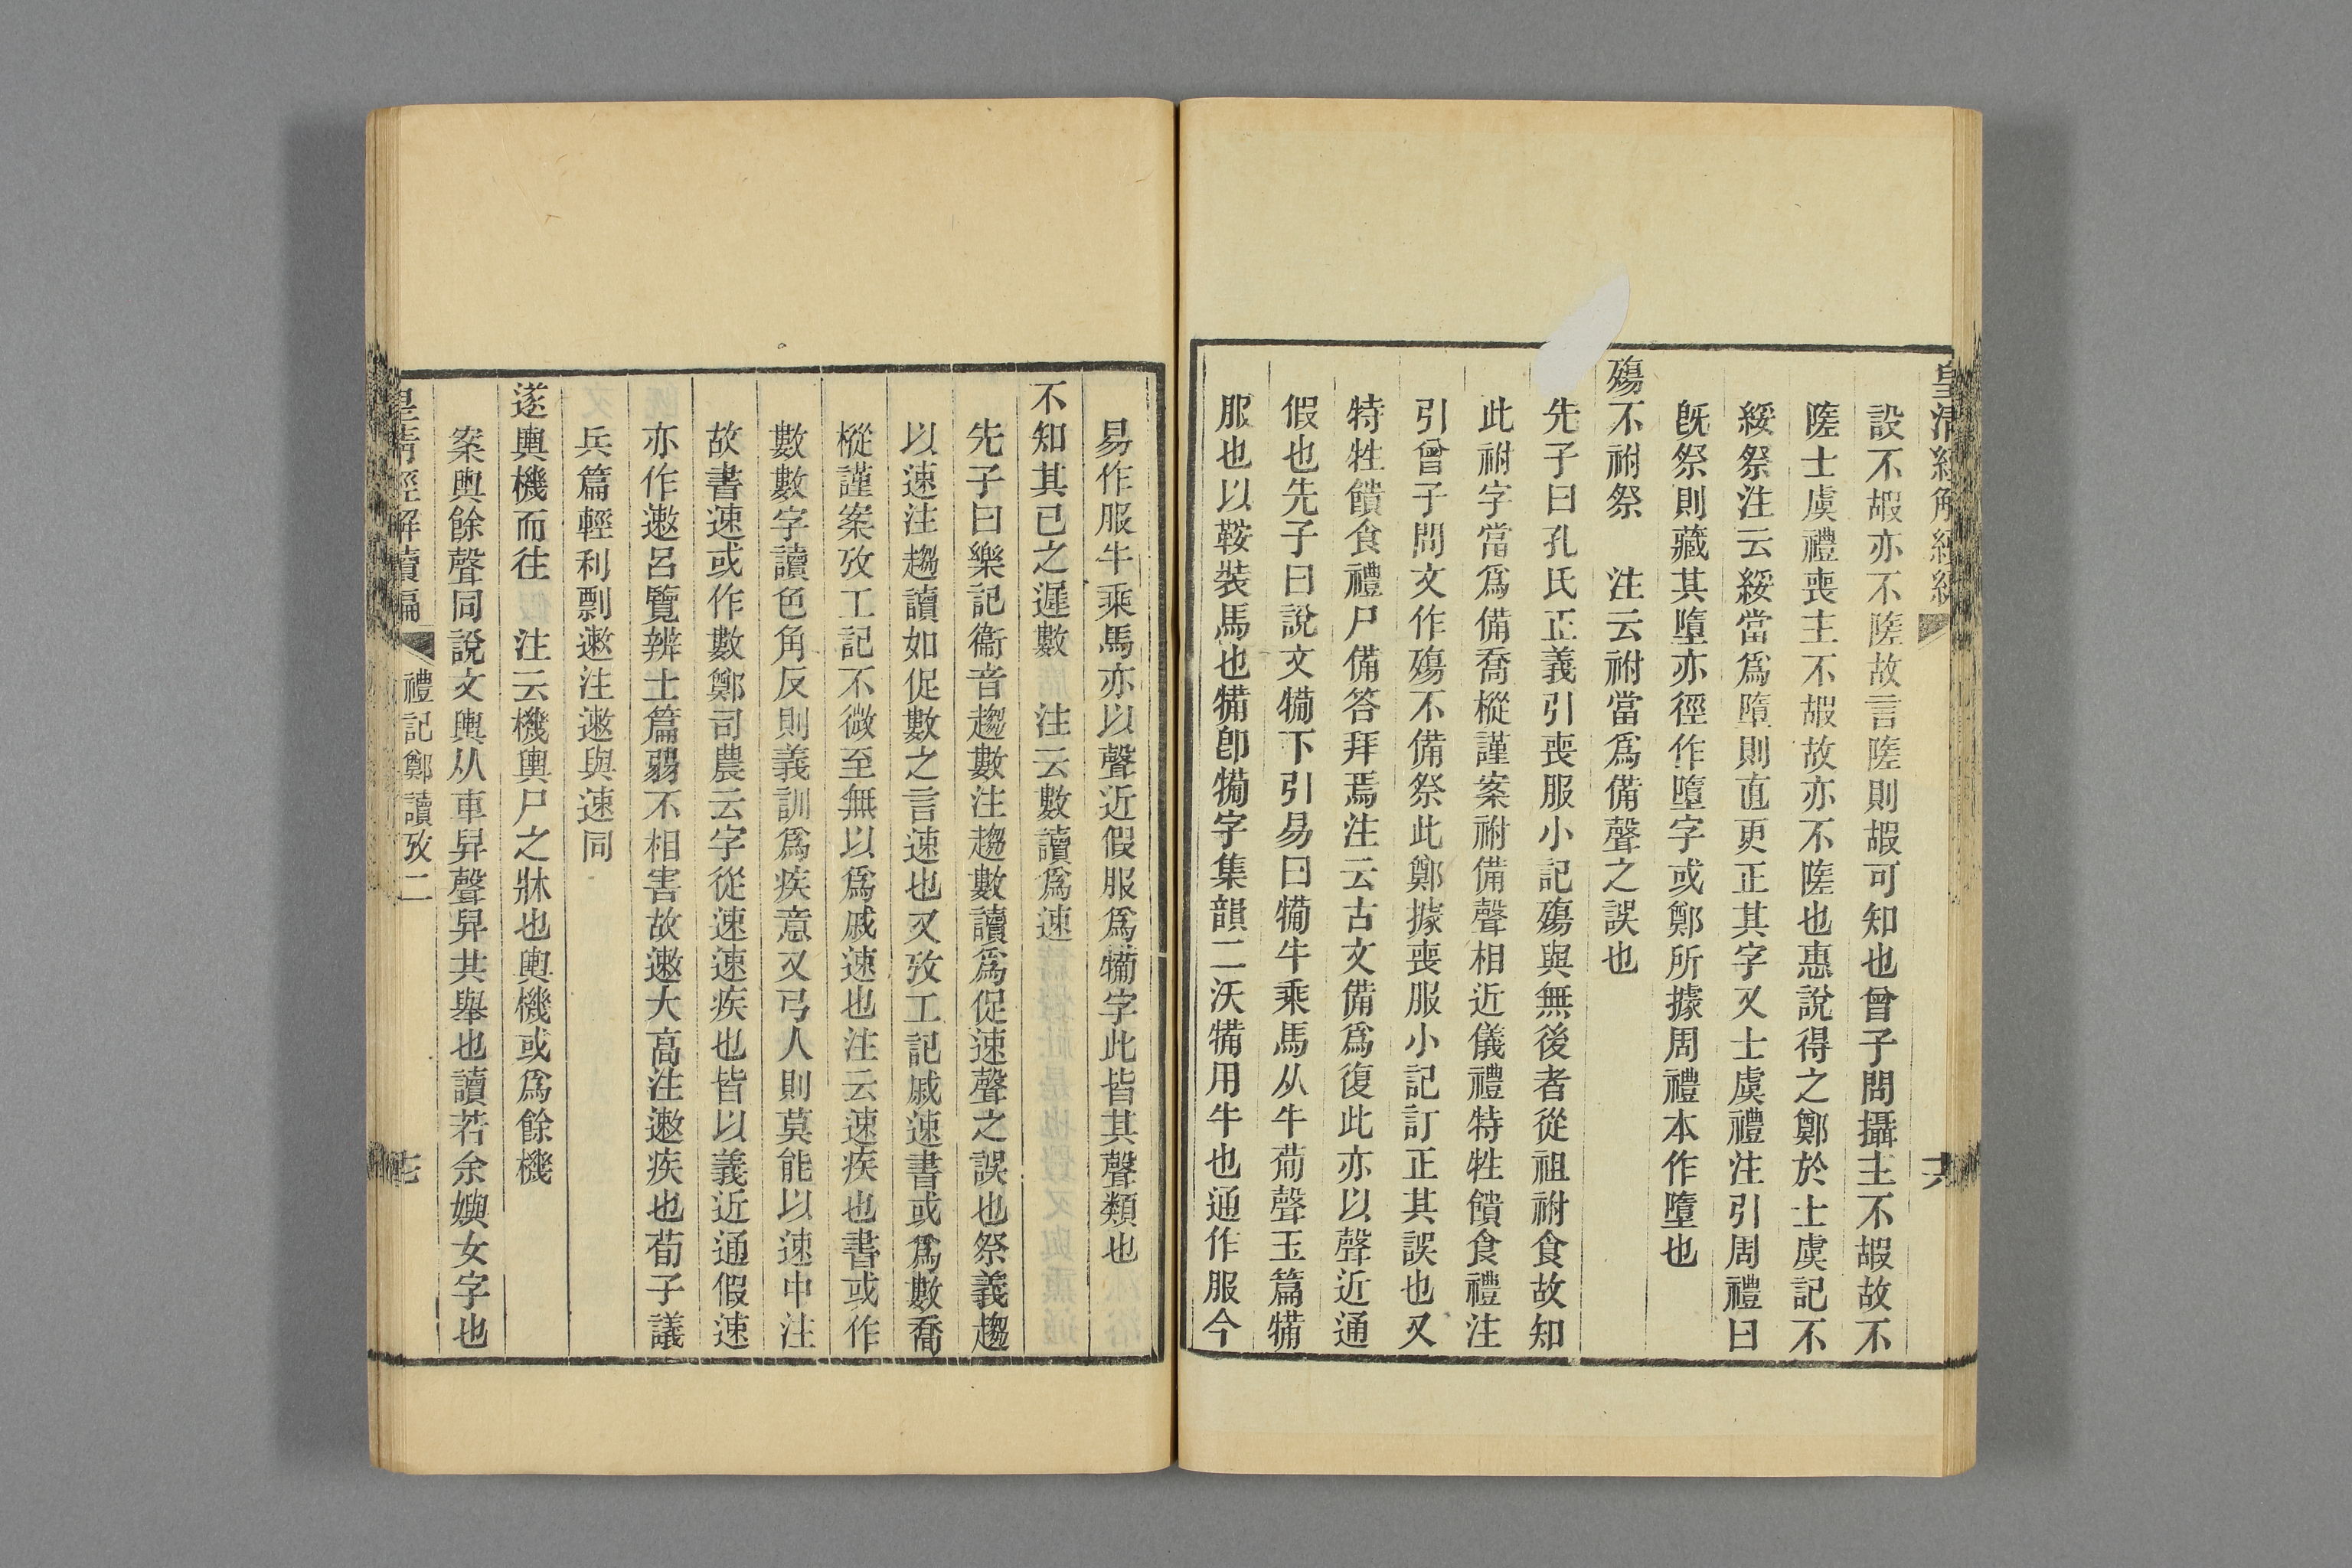 設不嘏亦不隓故言隓則嘏可知也曾子問攝主不嘏故不
隓士虞禮喪主不嘏故亦不隓也惠說得之鄭於士虞記不
綏祭注云綏當爲墮則直更正其字又士虞禮注引周禮曰
旣祭則藏其墮亦徑作墮字或鄭所據周禮本作墮也
殤不祔祭　注云祔當爲備聲之誤也
先子曰孔氏正義引喪服小記殤與無後者從祖祔食故知
此祔字當爲備喬樅謹案祔備聲相近儀禮特牲饋食禮注
引曾子問文作殤不備祭此鄭據喪服小記訂正其誤也又
特牲饋食禮尸備答拜焉注云古文備爲復此亦以聲近通
假也先子曰說文犕下引易曰犕牛乘馬从牛𤰇聲玉篇犕
服也以鞍裝馬也犕卽犕字集韻二沃犕用牛也通作服今
易作服牛乘馬亦以聲近假服爲犕字此皆其聲類也
不知其已之遲數　注云數讀爲速
先子曰樂記衞音趨數注趨數讀爲促速聲之誤也祭義趨
以速注趨讀如促數之言速也又攷工記戚速書或爲數喬
樅謹案攷工記不微至無以爲戚速也注云速疾也書或作
數數字讀色角反則義訓爲疾意又弓人則莫能以速中注
故書速或作數鄭司農云字從速速疾也皆以義近通假速
亦作遬呂覽辨土篇弱不相害故遬大高注遬疾也荀子議
兵篇輕利剽遬注遬與速同
遂輿機而往　注云機輿尸之牀也輿機或爲餘機
案輿餘聲同說文輿从車舁聲舁共舉也讀若余嬩女字也
皇清經解續編　禮記鄭讀攷二　七